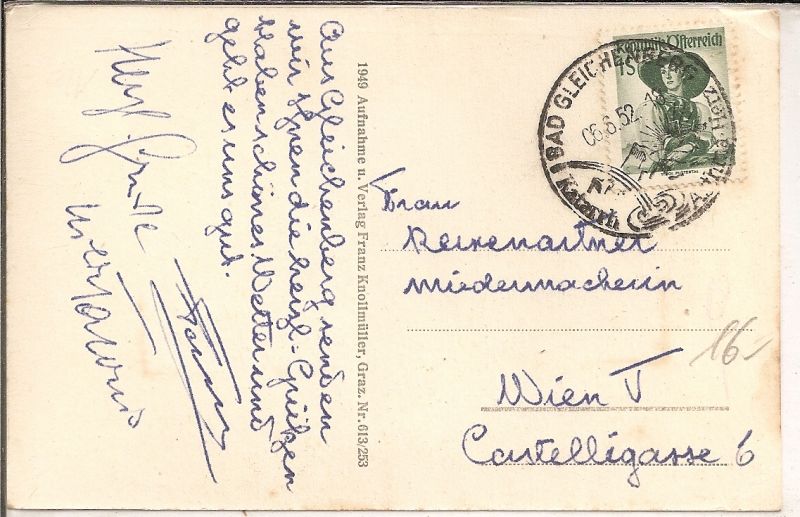 Aus Gleichenberg senden
wir Ihnen die herzl. Grüßen
Haben schönes Wetter und
geht es uns gut.
Herzl. Grüße
1949 Aufnahme u. Verlag Franz Knollmüller, Graz. Nr. 613/253
Republik Österreich
1S
BAD GLEICHENBERG
06.6.52.-18
Katarrh
Asthma
Herz
Frau
Miedermacherin
Wien V
Castelligasse 6
16-